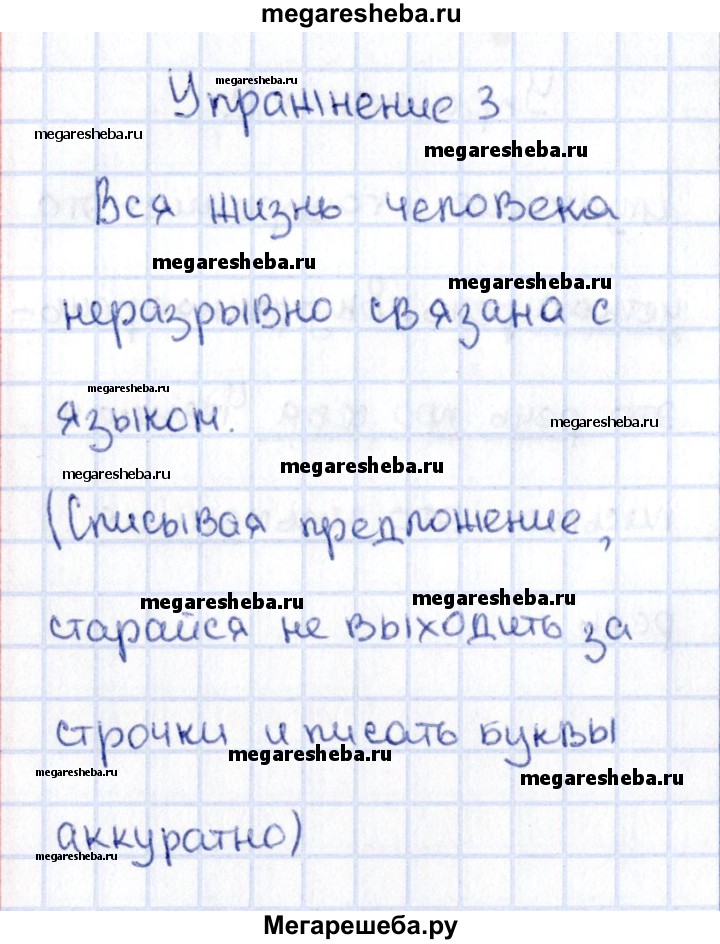 megaresheba.ru
megaresheba.ru
Упражнение 3
megaresheba.ru
megaresheba.ru
Вся жизнь человека
megaresheba.ru
megaresheba.ru
неразрывно связана с
megaresheba.ru
языком.
megaresheba.ru
megaresheba.ru
megaresheba.ru
(Списывая предложение,
megaresheba.ru
megaresheba.ru
старайся не выходить за
строчки и писать буквы
megaresheba.ru
megaresheba.ru
megaresheba.ru
аккуратно)
megaresheba.ru
Мегарешеба.ру